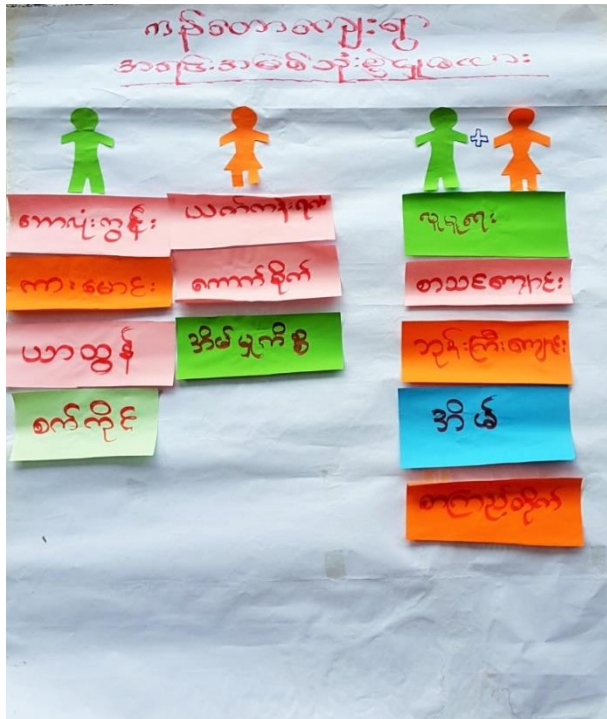 ကန်တောကျေးရွာ
အရင်းအမြစ်သုံးစွဲမှုဇယား
ဘောလုံးကွင်း
ကားမောင်း
ယာထွန်
စက်ကိုင်
ယက်ကန်းရက်
ကောက်စိုက်
အိမ်မှုကိစ္စ
လူမှုရေး
စာသင်ကျောင်း
ဘုန်းကြီးကျောင်း
အိမ်
စာကြည့်တိုက်